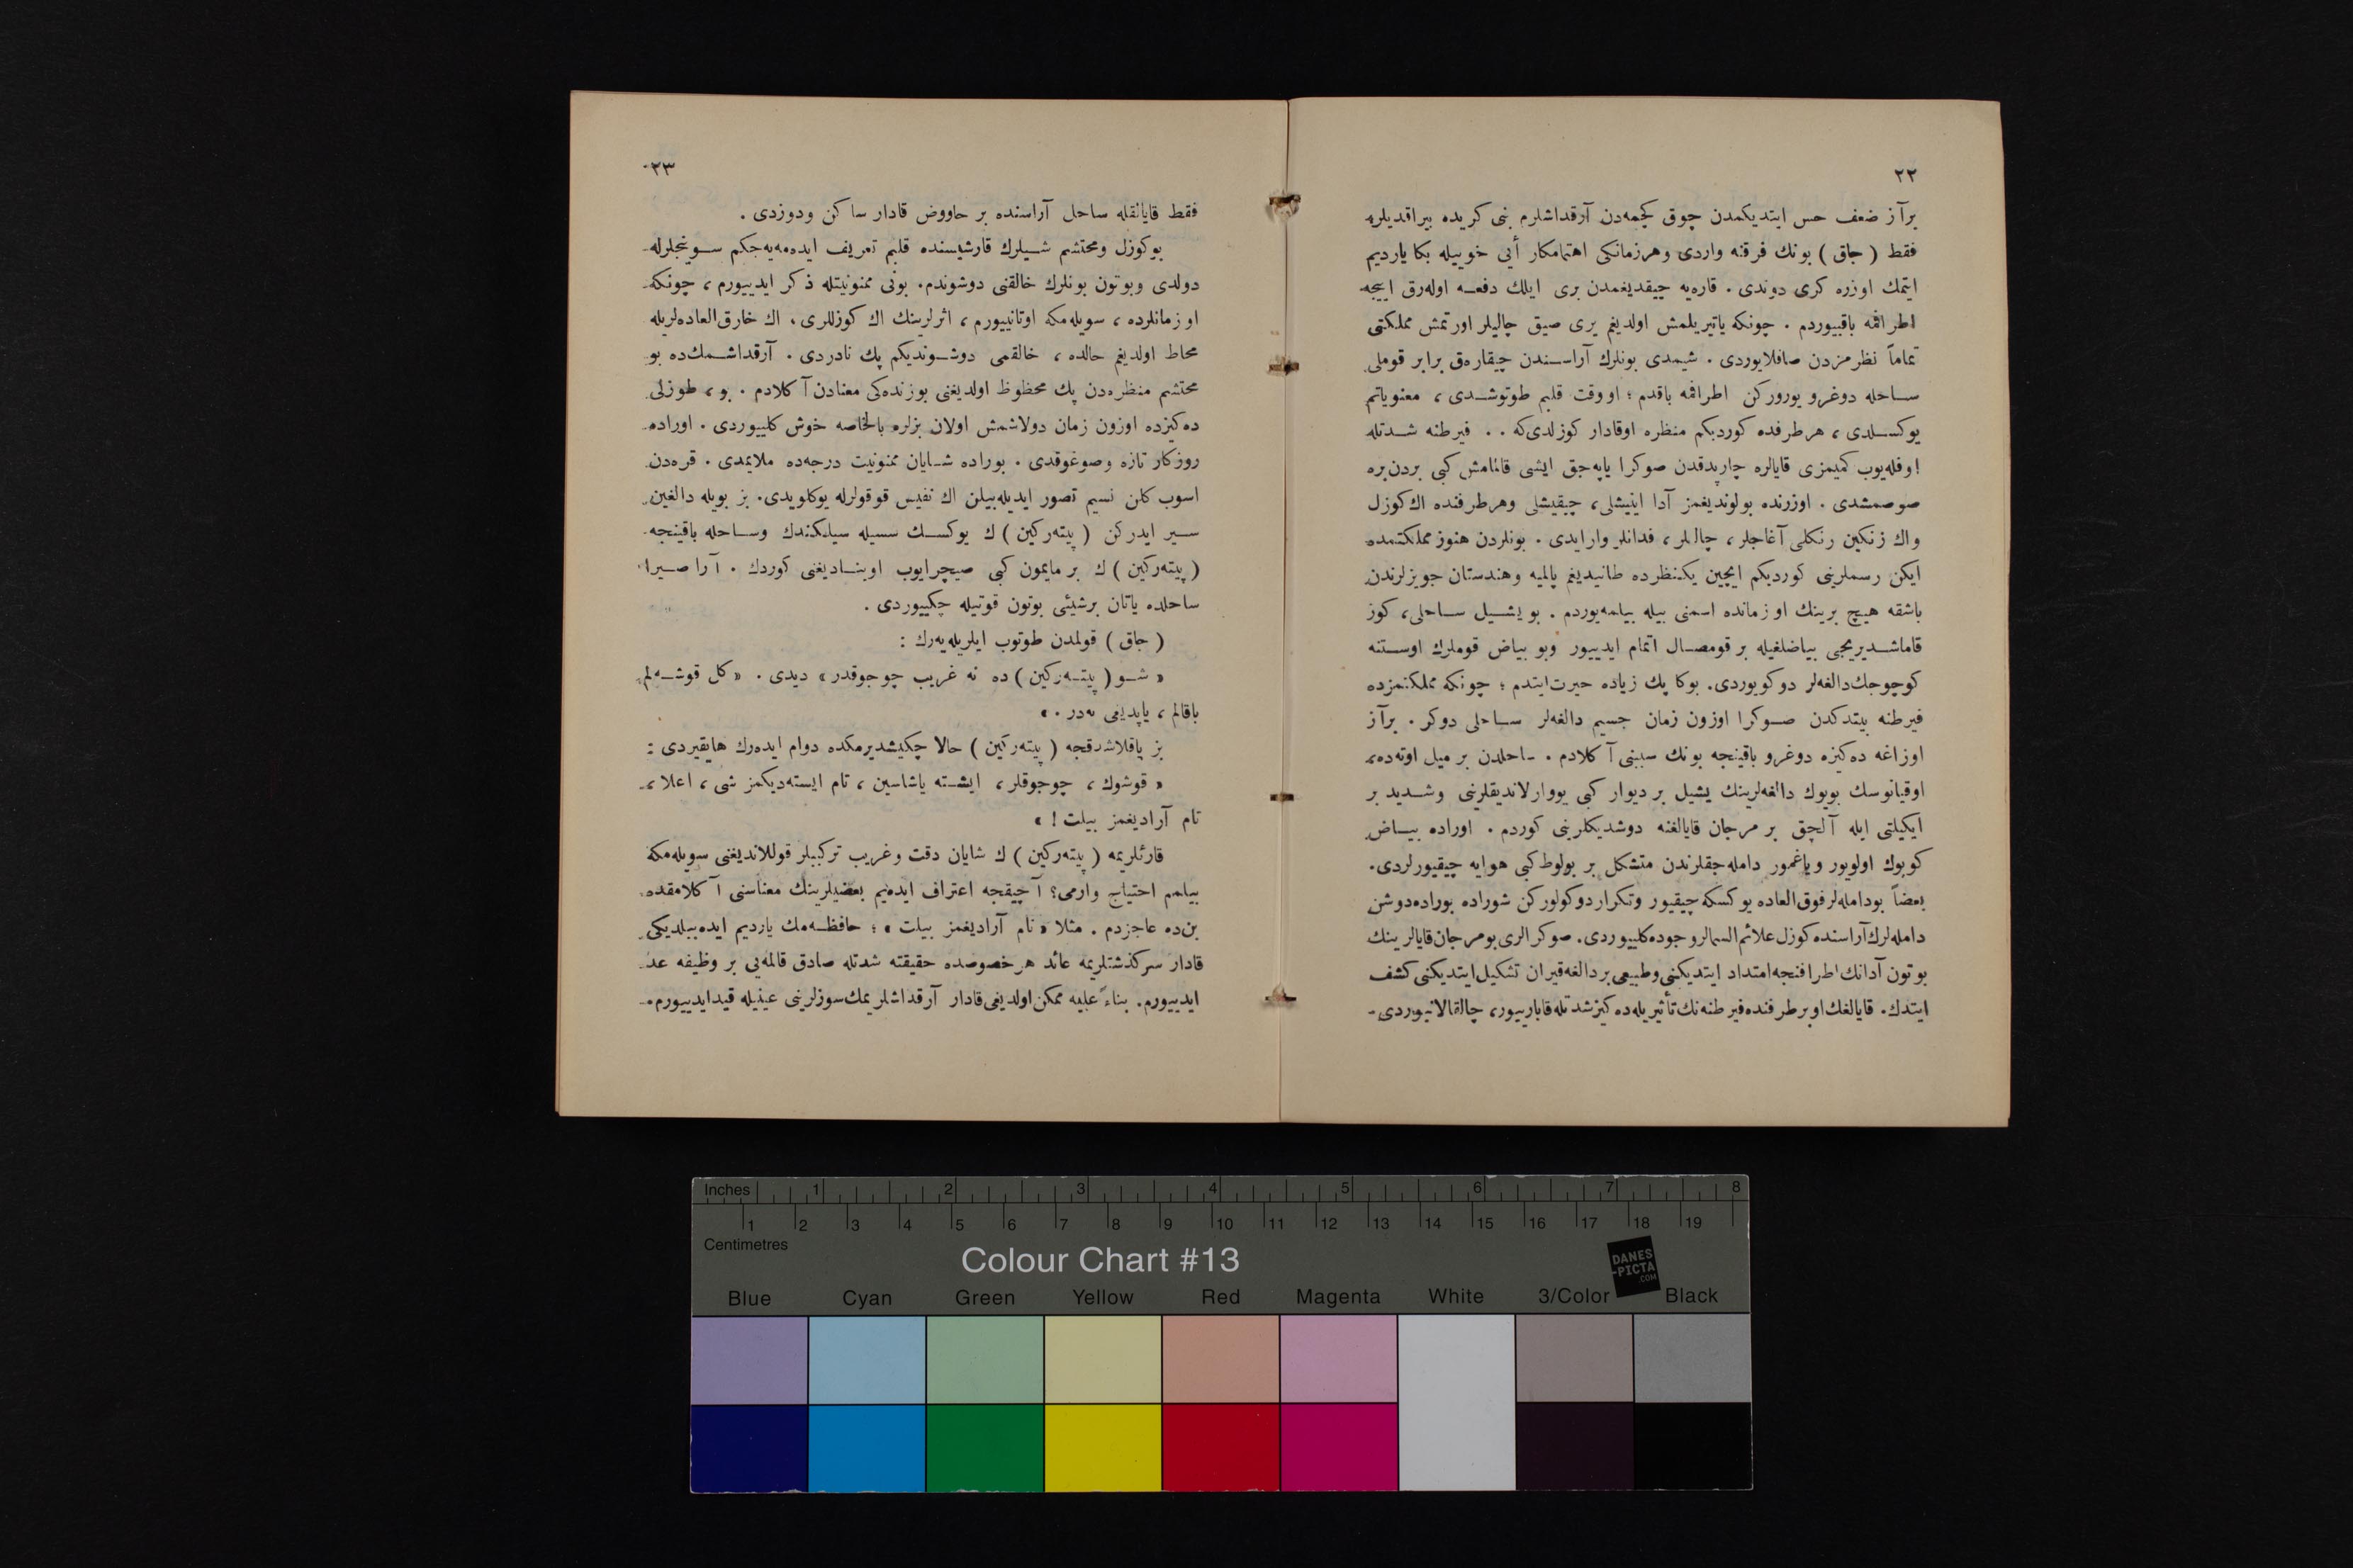 ٢٢
برآز ضعف حس ایتدیكمدن چوق كچمه‌دن آرقداشلرم بنی كریده بیراقدیلر.
فقط ( جاق ) بونك فرقنه واردی وهرزمانكی اهتمامكار أیی خوییله بكا یاردیم
ایتمك اوزره كری دوندی . قاره‌یه چیقدیغمدن بری ایلك دفعـه اوله‌رق اییجه
اطرافمه باقییوردم . چونكه یاتیریلمش اولدیغم یری صیق چالیلر اورتمش مملكتی
تماماً نظرمزدن صاقلایوردی . شیمدی بونلرك آراسـندن چیقاره‌ق برابر قوملی
سـاحله دوغرو یورورکن اطرافمه باقدم ؛ اووقت قلبم طوتوشـدی ، معنویاتم
یوكسـلدی ، هرطرفده كوردیكم منظره اوقادار كوزلدی‌كه . . فیرطنه شـدتله
اوفله‌یوب كمیمزی قایالره چارپدقدن صوكرا یاپه‌جق ایشی قالمامش كبی بردن‌بره
صوصمشدی . اوزرنده بولوندیغمز آدا اینیشلی، چیقیشلی وهرطرفنده اك‌كوزل
واك زنكین رنكلی آغاجلر ، چالیلر ، فدانلر وارایدی . بونلردن هنوز مملكتمده
ایكن رسملرینی كوردیكم ایچین یكنظرده طانیدیغم پالمیه وهندستان جویزلرندن
باشقه هیچ برینك او زمانده اسمنی بیله بیلمه‌یوردم . بو یشـیل سـاحلی، كوز
قاماشـدیریجی بیاضلغیله بر قومصـال اتمام ایدییور وبو بیاض قوملرك اوسـتنه
كوچوجك‌دالغه‌لر دوكویوردی. بوكا پك زیاده حیرت‌ایتدم ؛ چونكه مملكتمزده
فیرطنه بیتدكدن صـوكرا اوزون زمان جسیم دالغه‌لر سـاحلی دوكر . برآز
اوزاغه ده‌كیزه دوغرو باقینجه بونك سببنی آكلادم . ساحلدن بر میل اوته‌ده،
اوقیانوسك بویوك دالغه‌لرینك یشیل بر دیوار كبی یووارلاندیقلرینی وشـدید بر
ایكیلتی ایله آلچق بر مرجان قایالغنه دوشدیكلرینی كوردم . اوراده بیـاض
كوپوك اولویور ویاغمور دامله‌جقلرندن متشكل بر بولوط كبی هوایه چیقیورلردی.
بعضاً بودامله‌لرفوق‌العاده یوكسكه چیقیور وتكراردوكولورکن شوراده بوراده‌دوشن
دامله‌لرك‌آراسنده‌كوزل‌علائم‌السمالروجوده‌كلییوردی. صوكرالری‌بومرجان‌قایالرینك
بوتون آدانك‌اطرافنجه‌امتداد ایتدیكنی‌وطبیعی‌بردالغه‌قیران تشكیل‌ایتدیكنی‌كشف
ایتدك. قایالغك‌اوبرطرفنده‌فیرطنه‌نك‌تأثیریله‌ده‌كیزشدتله‌قاباریییور، چالقالانیوردی
٢٣
فقط قایالقله ساحل آراسنده بر حاووض قادار ساكن ودوزدی .
بوكوزل ومحتشم شـیلرك قارشیسنده قلبم تعریف ایده‌مه‌یه‌جكم سـوینجلرله
دولدی وبوتون بونلرك خالقنی دوشوندم. بونی ممنونیتله ذكر ایدییورم ، چونكه
او زمانلرده ، سویله‌مكه اوتانییورم ، اثرلرینك اك كوزللری ، اك خارق‌العاده‌لریله
محاط اولدیغم حالده ، خالقمی دوشـوندیكم پك نادردی . آرقداشـمك‌ده بو
محتشم منظره‌دن پك محظوظ اولدیغنی یوزنده‌كی معنادن آكلادم . بو ، طوزلی
ده‌كیزده اوزون زمان دولاشمش اولان بزلره بالخاصه خوش كلییوردی . اوراده
روزكار تازه وصوغوقدی . بوراده شـایان ممنونیت درجه‌ده ملایمدی . قره‌دن
اسوب كلن نسیم تصور ایدیله‌بیلن اك نفیس قوقولرله یوكلویدی. بز بویله دالغین
سـیر ایدركن ( پیته‌ركین ) ك یوكسـك سسیله سیلكندك وسـاحله باقینجه
( پیته‌ركین ) ك بر مایمون كبی صیچرایوب اوینـادیغنی كوردك . آرا صـیرا
ساحلده یاتان برشیئی بوتون قوتیله چكییوردی .
( جاق ) قولمدن طوتوب ایلریله‌یه‌رك :
« شـو ( پیتـه‌ركین ) ده نه غریب چوجوقدر » دیدی . « كل قوشـه‌لم
باقالم ، یاپدیغی نه‌در . »
بز یاقلاشدقجه ( پیته‌ركین ) حالا چكیشدیرمكده دوام ایده‌رك هایقیردی :
« قوشوك ، چوجوقلر ، ایشـته یاشاسین ، تام ایسته‌دیكمز شی ، اعلا ،
تام آرادیغمز بیلت ! »
قارئلریمه ( پیته‌ركین ) ك شایان دقت وغریب تركیبلر قوللاندیغنی سویله‌مكه
بیلمم احتیاج وارمی؟ آچیقجه اعتراف ایده‌یم بعضیلرینك معناسنی آكلامقده
بن‌ده عاجزدم . مثلا « تام آرادیغمز بیلت » ؛ حافظـه‌مك یاردیم ایده‌بیلدیكی
قادار سركذشتلریمه عائد هر خصوصده حقیقته شدتله صادق قالمه‌یی بر وظیفه عد
ایدییورم. بناءً علیه ممكن‌اولدیغی‌قادار آرقداشلریمك‌سوزلرینی عینیله قیدایدییورم.
Inches 1 2 3 4 5 6 7 8
1 2 3 4 5 6 7 8 9 10 11 12 13 14 15 16 17 18 19
Centimetres
Colour Chart #13
DANES
-PICTA
.COM
Blue Cyan Green Yellow Red Magenta White 3/Color Black